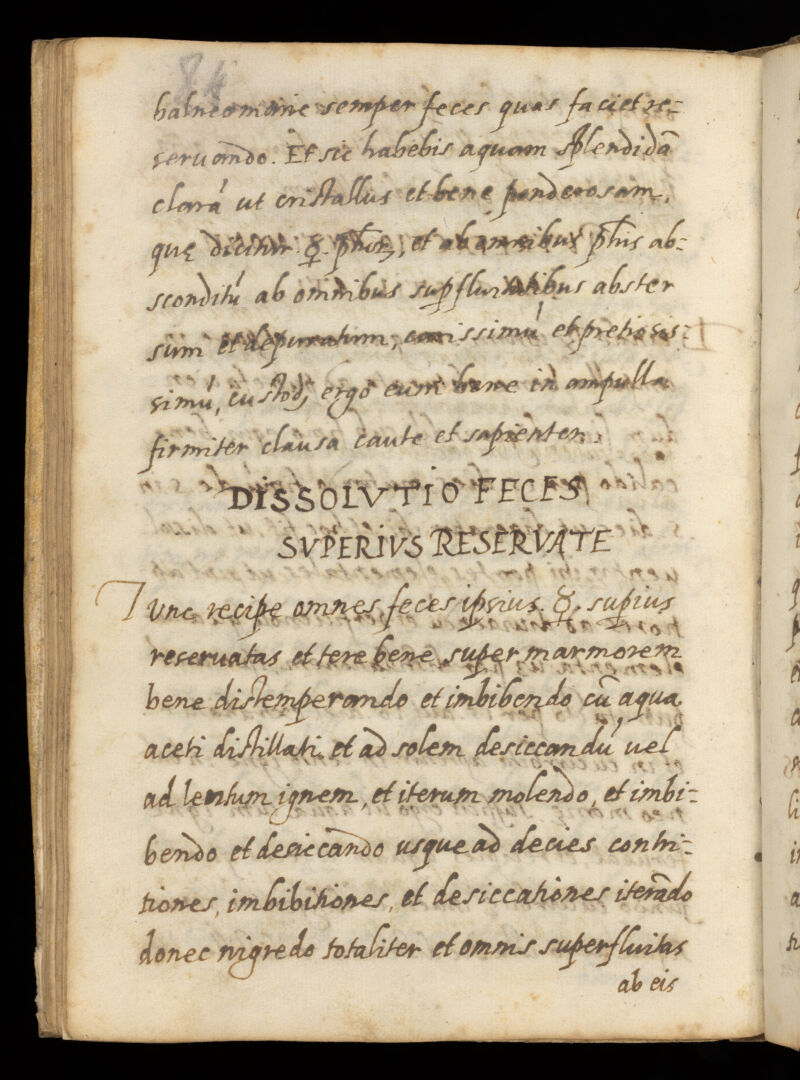 84
balneo marie semper feces quas faciet re-
seruando. Et sic habebis aquam splendidā
clarā ut cristallus et bene ponderosam,
quę dicitur ☿ et ab omnibus ab-
sconditū ab omnibus supfluitatibus abster
sum et depuratum, carissimū et pretiosis-
simū, custodi ergo eum bene in ampulla
firmiter clausa caute et sapienter.
DISSOLVTIO FECES
SVPERIVS RESERVATE
Tunc recipe omnes feces ipsius ☿. supius
reseruatas et tere bene super marmorem
bene distemperando et imbibendo cū aqua
aceti distillati et ad solem desiccandū uel
ad lentum ignem, et iterum molendo, et imbi-
bendo et desiccando usque ad decies contri-
tiones, imbibitiones, et desiccationes iterādo
donec nigredo totaliter et omnis superfluitas
ab eis